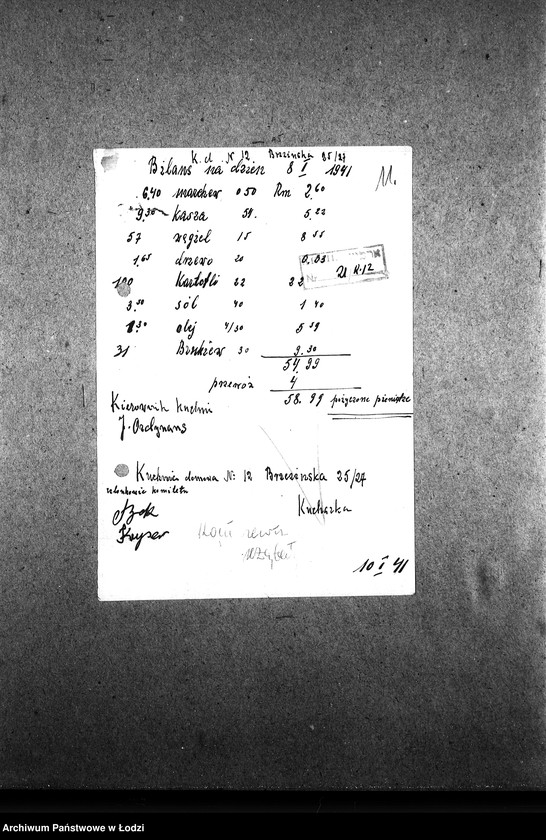 K. d. N 12 Brzezinska 25/27
Bilans na dzień 8 I 1941
11.
6.40 marchew 0 50 Rm 2.60
9.30 kasza 58. 5.22
57 węgiel 15 8 55
1.65 drzewo 20 0.03
21 N.12
100 Kartofli 22 22
3.50 sól 40 1 40
1.30 olej 4/30 5 59
31 Buraków 30 9.30
54.99
przewóz 4
58.99 pożyczone pieniądze
Kierownik kuchni
J.
Kuchnia domowa N: 12 Brzezinska 25/27
członkowie komitetu
Kucharka
10 I 41
Archiwum Państwowe w Łodzi